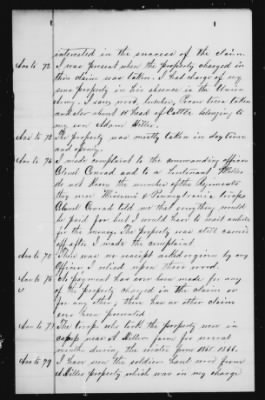 interested in the success of the claim.
Ans to 72 I was present when the property charged in
this claim was taken. I had charge of my
sons property in his absence in the Union
Army. I saw
taken about 10 head of Cattle belonging to
my son Adam Miller.
Ans to 73 The property was mostly taken in day time
and openly.
Ans to 74 I made complaint to the commanding officer
Conrad and to a Lieutenant Miller
do not know the number of the Regiments
they were Missouri & Pennsylvania troops
Conrad told me that everything would
be paid for but I would have to wait awhile
for the money. The property was still carried
off after I made the complaint
Ans to 75 There was no receipt asked or given by any
Officer I relied upon their word.
Ans to 76 No payment has ever been made for any
of the property charged in the claim or
for any other, there has no other claim
ever been presented
Ans to 77 The troops who took the property were in
camp near St Millers farm for several
months during the winter from 1865 1866.
Ans to 79 I have seen the soldiers haul wood from
Millers property which was in my charge